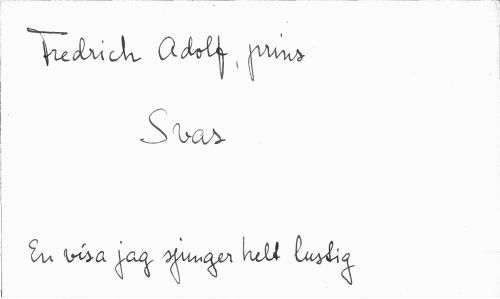 Fredrich Adolf, prins
Svas
En visa jag sjunger helt lustig